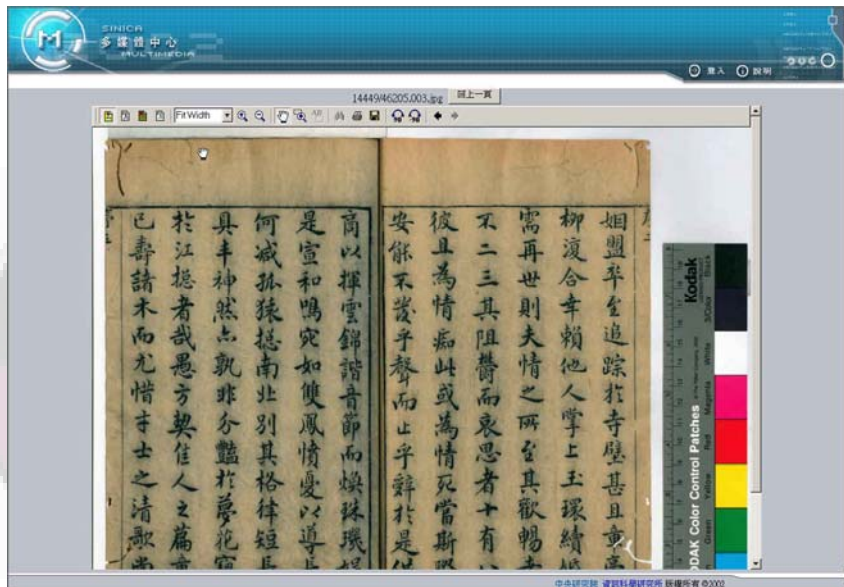 SINICA
多媒體中心
MULTIMEDIA
登入 說明
14449/46205.003.jpg 回上一頁
Fit Width
姻盟卒至追踪於寺壁甚且重
柳復合幸賴他人掌上玉環續
需再世則夫情之所至其歡暢
不二三其阻鬱而哀思者十有
彼且為情痴此或為情死當斯
安能不發乎聲而止乎辭於是
高以揮雲錦諧音節而煥珠璣
是宣和鳴宛如雙鳳憤憂以導
何減孤猿搃南北別其格律短長
具丰神然亦孰非分豔於夢花
於江搃者哉愚方契佳人之篇
已壽諸木而尤惜才士之清歌尚
Kodak
KODAK Color Control Patches
Black
3/Color
White
Magenta
Red
Yellow
Green
中央研究院 資訊科學研究所 版權所有 ©2002